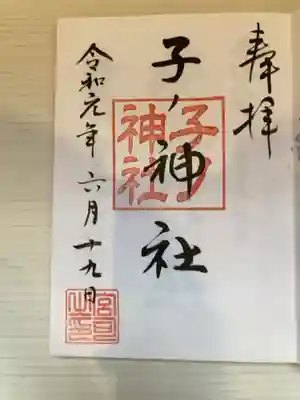 奉拝
子ノ神社
子ノ
神社
令和元年 六月十九日